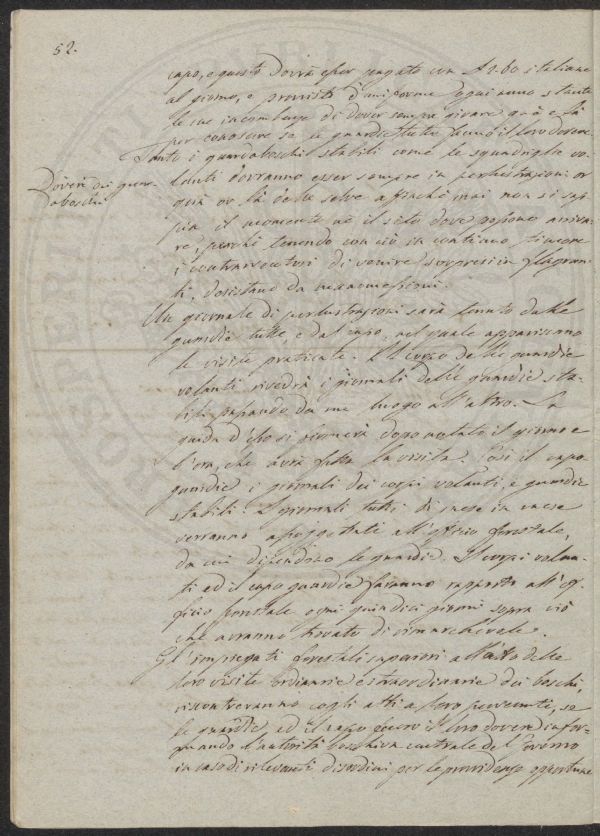 52.
capo, e questo dovrà esser pagato con L 2.60 italiane
al giorno, e provvisti d'uniforme ogni anno stante
le sue incombenze di dover sempre girare quà e là
per conoscere se le guardie tutte fanno il loro dovere.
Doveri dei guar-
daboschi
Tanto i guardaboschi stabili come le squadriglie vo-
lanti dovranno esser sempre in perlustrazione or
quà or là delle selve affinchè mai non si sap-
pia il momento nè il sito dove possono arriva-
re, perchè tenendo con ciò in continuo timore
i contravventori di venire sorpresi in flagran-
ti, desistano da manomissioni.
Un giornale di perlustrazioni sarà tenuto dalle
guardie tutte, e dal capo, nel quale appariscano
le visite praticate. Il corpo delle guardie
volanti rivedrà i giornali delle guardie sta-
bili passando da un luogo all'altro. La
guida d'esso si firmerà dopo notato il giorno e
l'ora, che avrà fatta la visita. Così il capo
guardie i giornali dei corpi volanti, e guardie
stabili. I giornali tutti di mese in mese
verranno assoggettati all'officio forestale,
da cui dipendono le guardie. I corpi volan-
ti ed il capo guardie faranno rapporto all'of-
ficio forestale ogni quindici giorni sopra ciò
che avranno trovato di rimarchevole.
Gl'impiegati forestali superiori all'atto delle
loro visite ordinarie e straordinarie dei boschi,
riscontreranno cogli atti a loro pervenuti, se
le guardie ed il capo fecero il loro dovere infor-
mando l'autorità boschiva centrale del Governo
in caso di rilevanti disordini per le providenze opportune